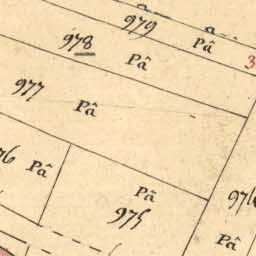 979
Pâ
978
Pâ
3
977
Pâ
Pâ
Pâ
975
Pâ